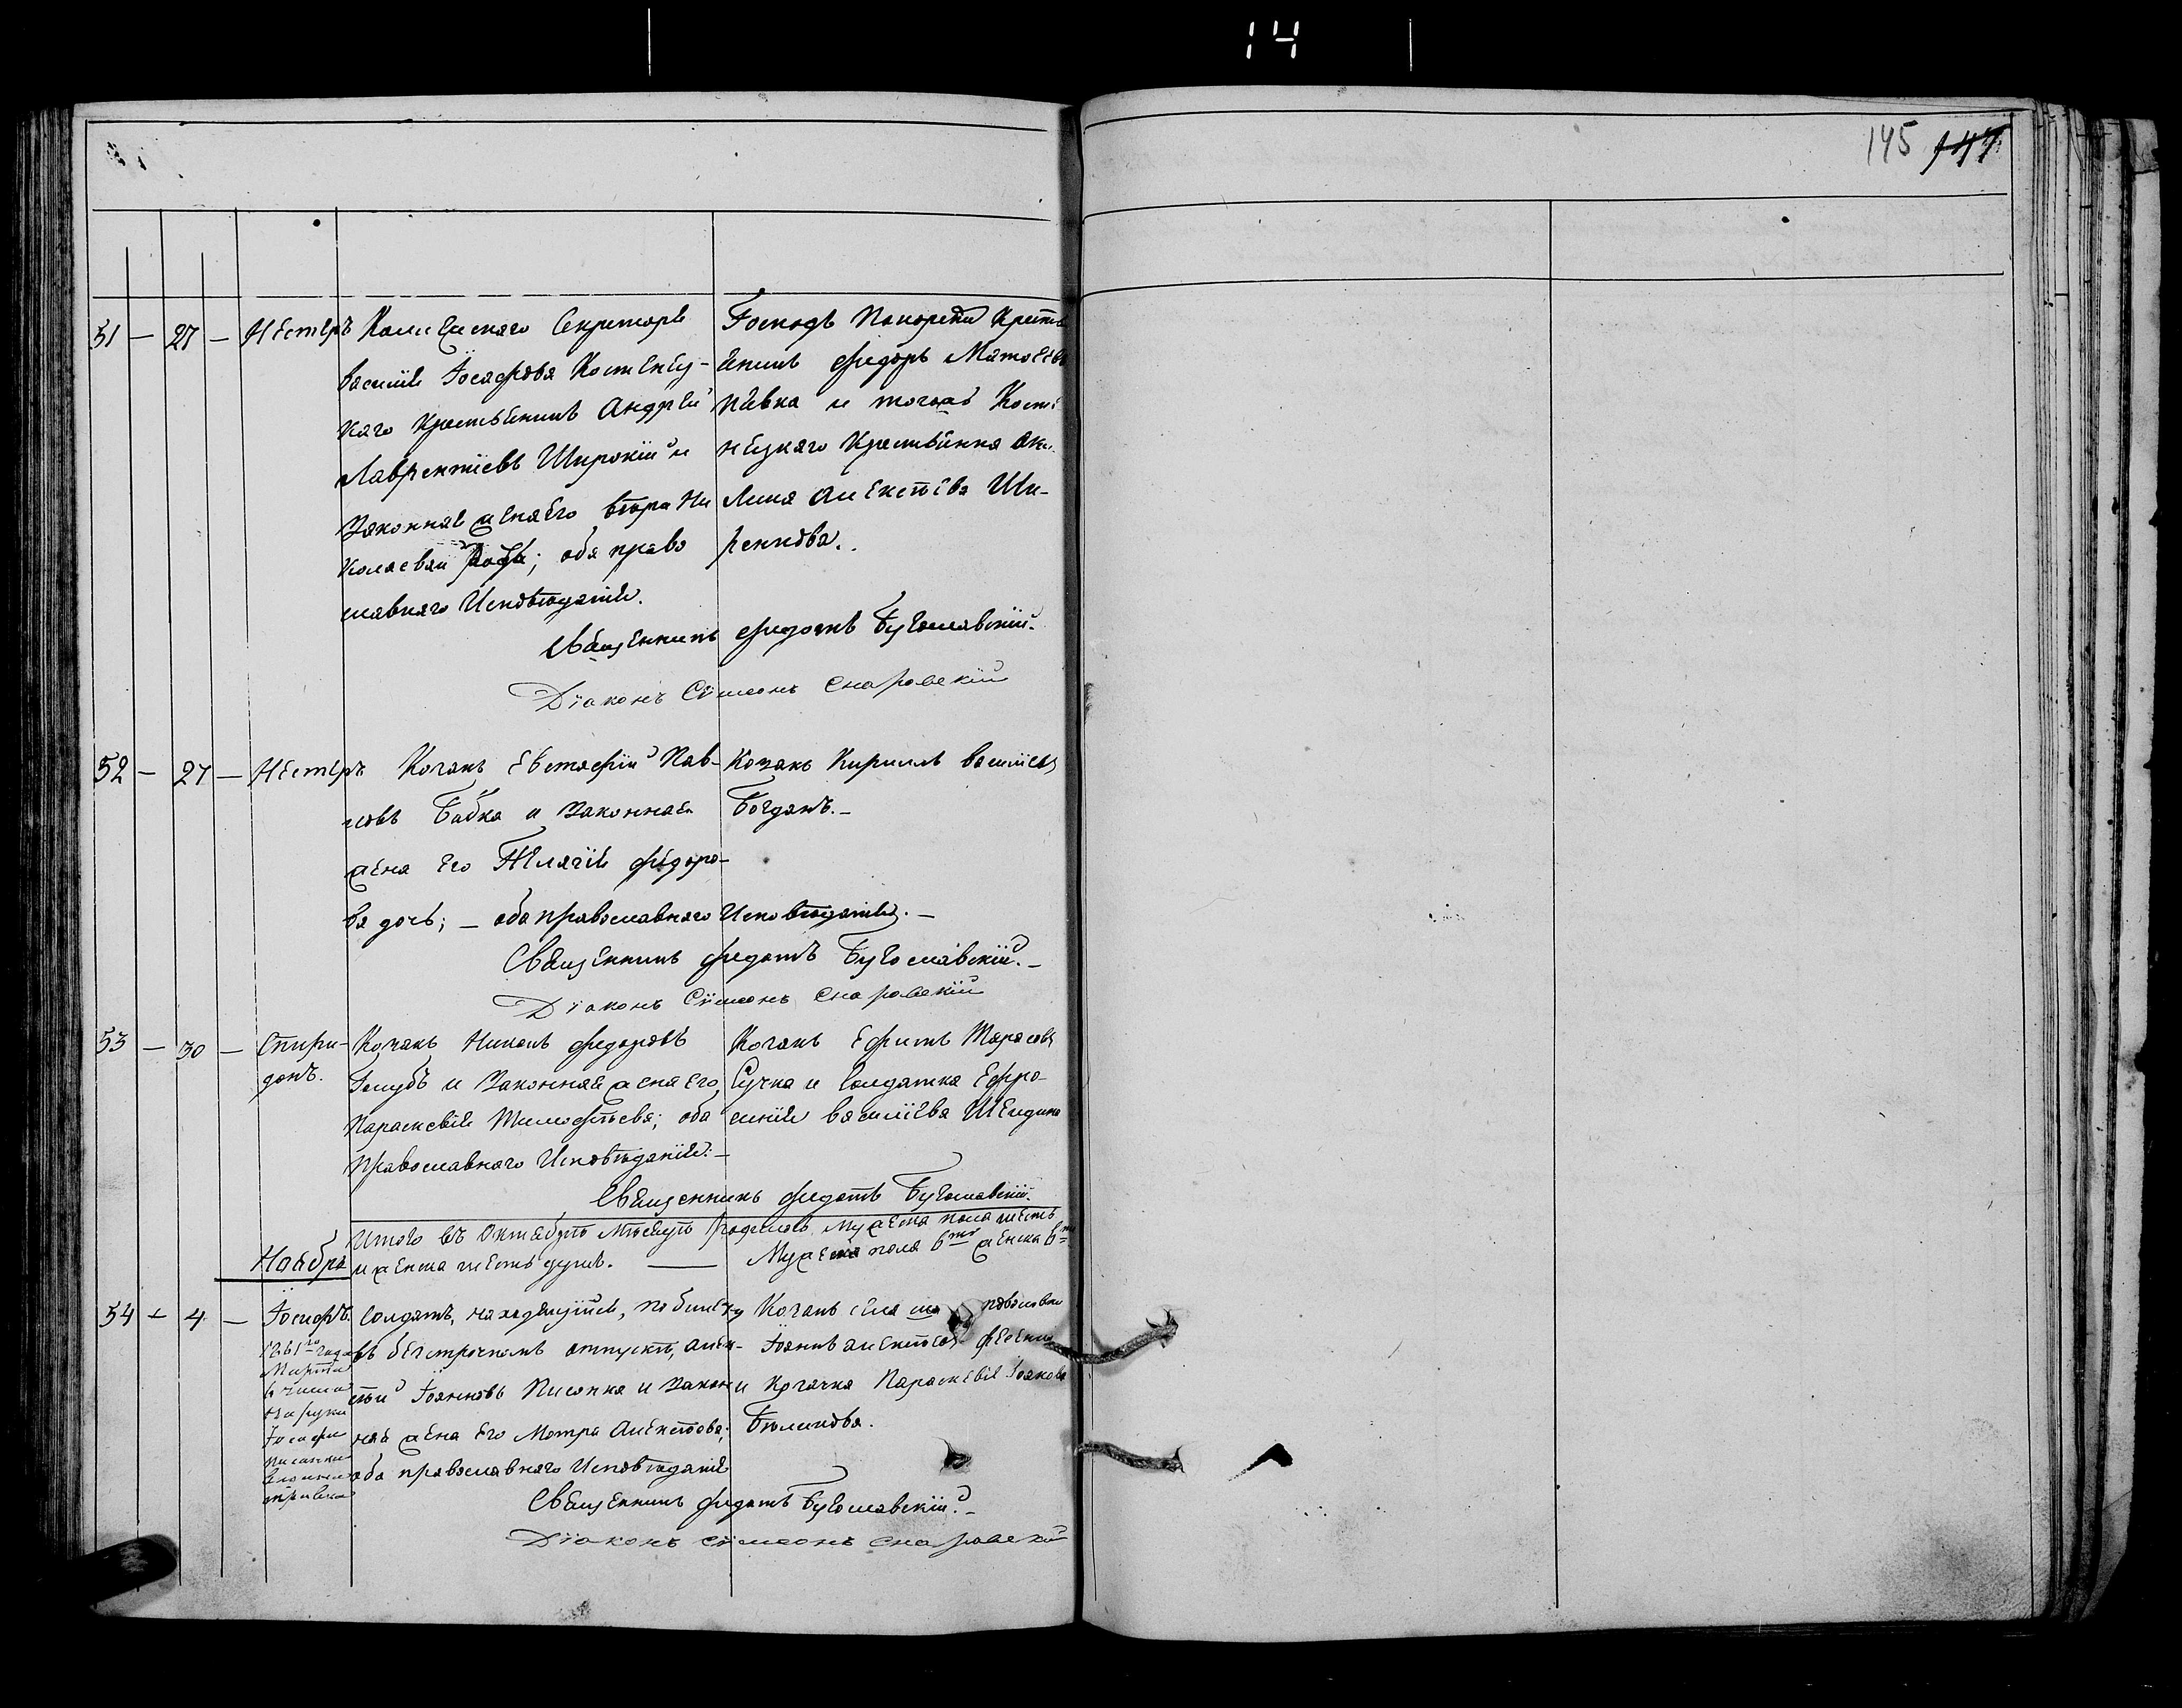 14
145 147
51 — 27 — Несторъ
Колежскаго Секретаря
Василія Іосафова Костенец-
каго крестьянинъ Андрей
Лаврентіевъ Широкій и
Законная жена его
Николаева дочь; оба право
славнаго Исповѣданія.
Господъ крестья
янинъ Федоръ Матвѣевъ
Павка и тогожъ Косте
нецкаго крестьянка Аки
лина Алексѣева Ши-
рокова.
Священникъ Федотъ Бугославскій.
Діаконъ Сімеонъ
52 — 27 — Несторъ
Козакъ Евстафій Пав-
ловъ Бабка и Законная
жена его Пелагія Федоро-
ва дочь; — оба православнаго Исповѣданія. —
Козакъ Кириллъ Василіевъ
Богданъ. —
Священникъ Федотъ Бугославскій. —
Діаконъ Сімеонъ
53 — 30 — Спири-
донъ.
Козакъ Федоровъ
Голубъ и Законная жена его,
Параскевія Тимофѣева; оба
православнаго Исповѣданія. —
Козакъ Ефимъ Тарасовъ
Сучка и Солдатка Ефро-
синія Василіева
Священникъ Федотъ Бугославскій.
Итого въ Октябрѣ Мѣсяцѣ Родилось Мужеска пола шесть
и женска шесть душъ. — Мужеска пола 6 женска 6
Ноябрь
54 — 4 — Іосифъ.
1861го года
Марта
Солдатъ, находящійся, по билету
въ безсрочномъ отпускѣ, Алек-
сѣй Іоанновъ Писанка и Закон-
ная жена его Мотра Алексѣева;
оба православнаго Исповѣданія
Козакъ села
Іоаннъ Алексѣевъ
и Козачка Параскевія Іоакова
Бѣликова.
Священникъ Федотъ Бугославскій. —
Діаконъ Сімеонъ